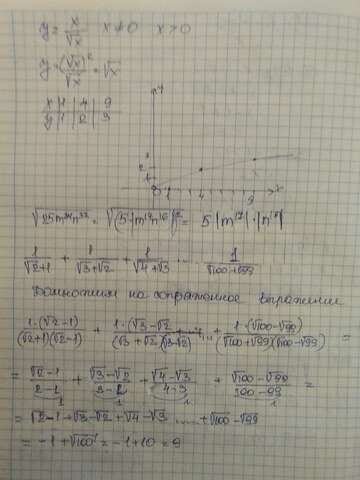 y = x/√x   x ≠ 0   x > 0
y = (√x)²/√x = √x
x | 1 | 4 | 9
y | 1 | 2 | 3
y
3
2
1
0 1 4 9 x
√25m³⁴n³² = √(5|m¹⁷n¹⁶|)² = 5|m¹⁷|·|n¹⁶|
1/(√2+1) + 1/(√3+√2) + 1/(√4+√3) ... 1/(√100+√99)
Домножим на сопряженное выражение
1·(√2-1)/((√2+1)(√2-1)) + 1·(√3-√2)/((√3+√2)(√3-√2)) + ... + 1·(√100-√99)/((√100+√99)(√100-√99)) =
= (√2-1)/(2-1) + (√3-√2)/(3-2) + (√4-√3)/(4-3) ... + (√100-√99)/(100-99) =
1 1 1 1
= √2-1+√3-√2+√4-√3 ..... +√100-√99
= -1+√100 = -1+10 = 9